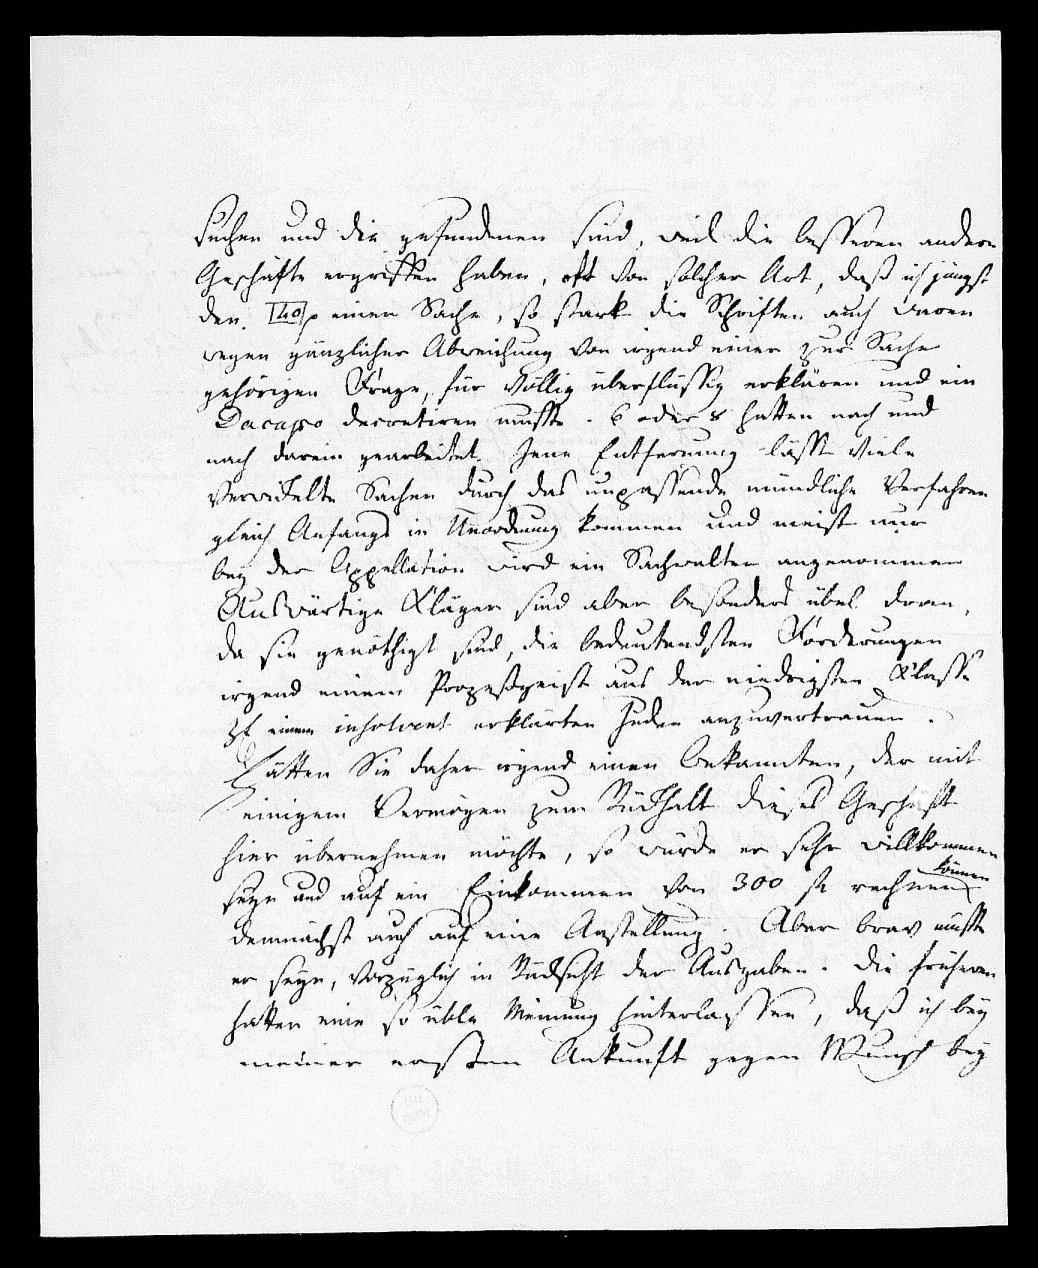 suchen und die gefundenen sind, weil die besseren andere
Geschäfte ergriffen haben, oft von solcher Art, daß ich jüngst
den einer Sache, so stark die Schriften auch waren
wegen gänzlicher Abweichung von irgend einer zur Sache
gehörigen Frage, für völlig überflüssig erklären und ein
Dacapo decretiren musste. 6 oder 8 hatten nach und
nach darein gearbeitet. Jene Entfernung lässt viele
verwickelte Sachen durch das unpassende mündliche Verfahren
gleich Anfangs in Unordnung kommen und meist nur
bey der Appellation wird ein Sachwalter angenommen
Auswärtige Kläger sind aber besonders übel dran,
da sie genöthigt sind, die bedeutendsten Forderungen
irgend einem Prozeßgeist aus der niedrigsten Klasse
einem insolvent erklärten Juden anzuvertrauen.
Hätten Sie daher irgend einen Bekannten, der mit
einigem Vermögen zum Rückhalt dieses Geschäft
hier übernehmen möchte, so würde er sehr willkommen
seyn und auf ein Einkommen von 300 rechnen können
demnächst auch auf eine Anstellung. Aber brav müsste
er seyn, vorzüglich in Rücksicht der Ausgaben. Die früheren
hatten eine so üble Meinung hinterlassen, daß ich bey
meiner ersten Ankunft gegen Wunsch bey